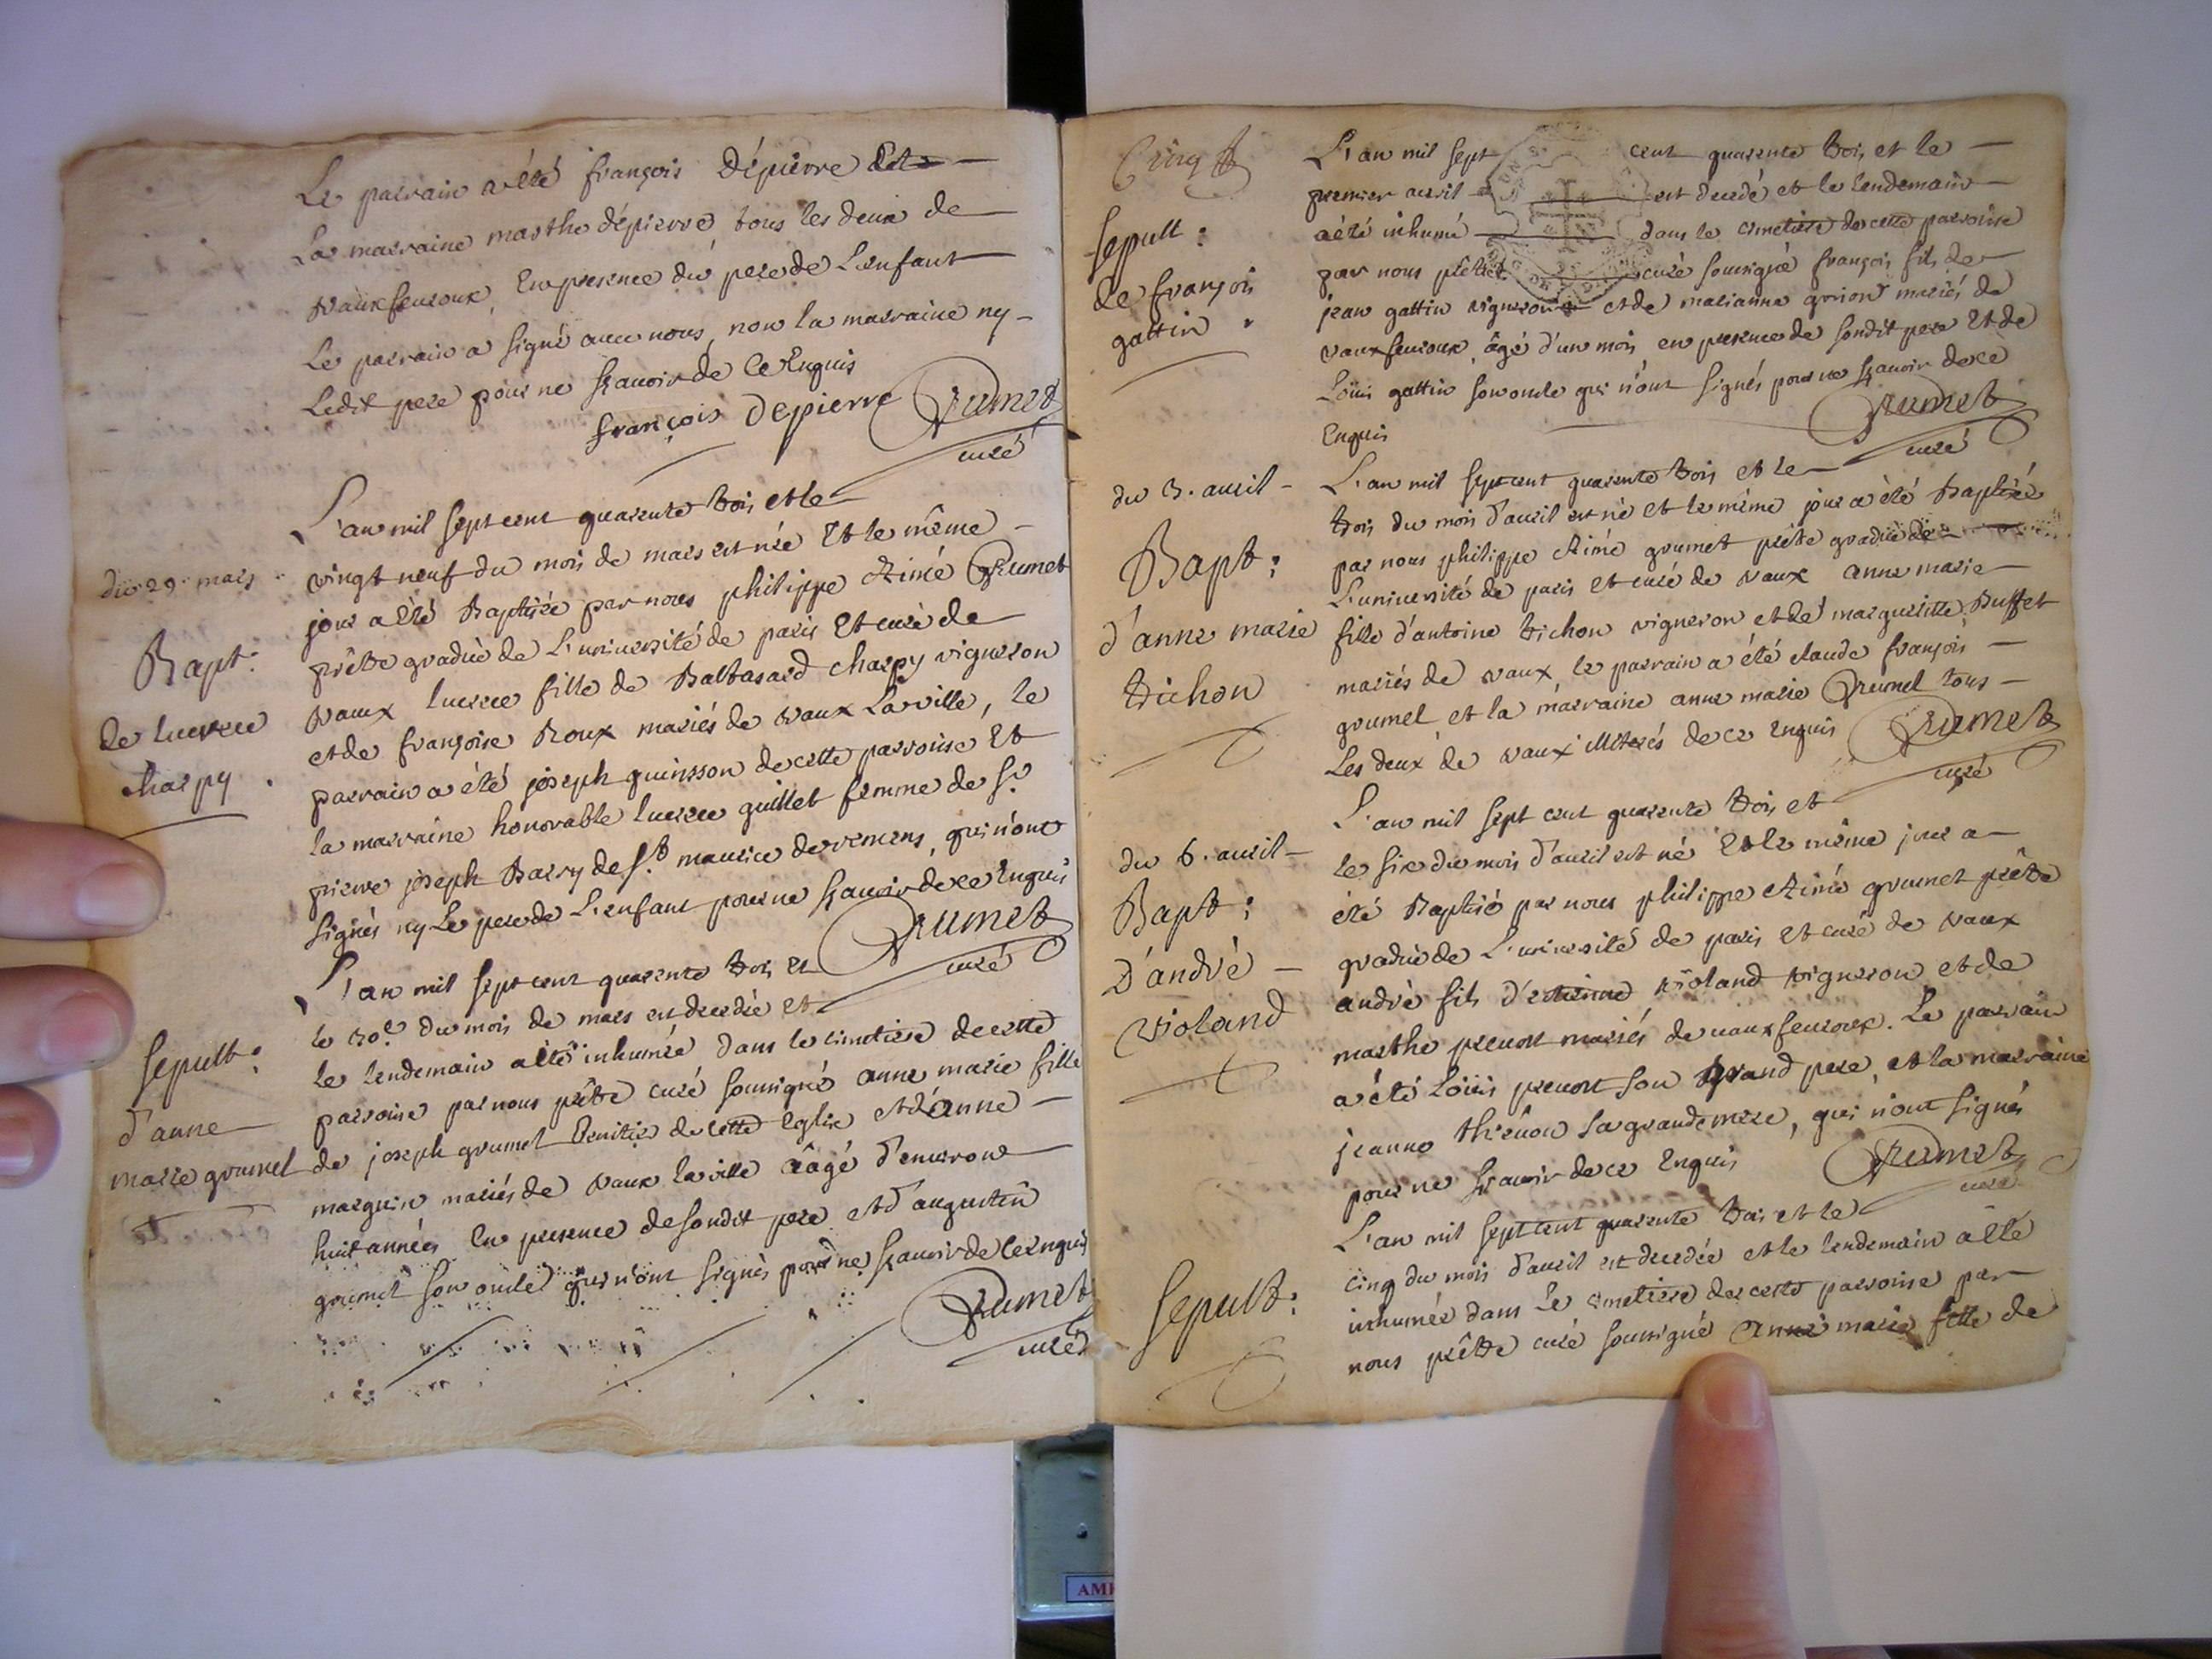 Le parrain a été françois Dépierre Et
La marraine marthe dépierre tous les deux de
Vauxfevroux, En presence du pere de L'enfant
Le parrain a signé avec nous, non la marraine ny
Ledit pere pour ne sçavoir de ce Enquis
françois Depierre Grumet
curé
du 29 mars
Bapt:
de lucrece
charpy
L'an mil sept cent quarente trois et le
vingt neuf du mois de mars est née Et le même
jour a été Baptisée par nous philippe Aimé Grumet
prêtre gradué de L'université de paris Et curé de
Vaux lucrece fille de Baltasard charpy vigneron
et de françoise Roux mariés de Vaux La ville, le
parrain a été joseph guinsson de cette parroisse Et
la marraine honorable lucrece guillet femme de Sr
pierre joseph Barry de St maurice de remens, qui n'ont
signés ny Le pere de L'enfant pour ne sçavoir de ce Enquis
Grumet
curé
Sepult:
d'anne
marie grumel
L'an mil sept cent quarente trois Et
le 30e du mois de mars est decedée et
le lendemain a été inhumée dans le cimetiere de cette
parroisse par nous prêtre curé soussigné anne marie fille
de joseph grumel Benitier de cette Eglise et d'anne
marguin mariés de Vaux la ville âgé d'environ
huit années En presence de sondit pere et d'augustin
grumel son oncle qui n'ont signés pour ne sçavoir de ce enquis
Grumet
curé
Cinq
Sepult:
de françois
gattin
L'an mil sept cent quarente trois et le
premier avril est decedé et le lendemain
a été inhumé dans le cimetiere de cette parroisse
par nous prêtre curé soussigné françois fils de
jean gattin vigneron et de marianne gorion mariés de
Vauxfevroux, âgé d'un mois, en presence de sondit pere Et de
Loüis gattin son oncle qui n'ont signés pour ne sçavoir de ce
Enquis
Grumet
curé
du 3. avril
Bapt:
d'anne marie
tichon
L'an mil sept cent quarente trois et le
trois du mois d'avril est né et le même jour a été Baptisée
par nous philippe Aimé grumet prêtre gradué de
L'université de paris et curé de Vaux anne marie
fille d'antoine tichon vigneron et de margueritte Buffet
mariés de Vaux, le parrain a été claude françois
grumel et la marraine anne marie Grumel tous
Les deux de Vaux illiterés de ce Enquis Grumet
curé
du 6. avril
Bapt:
D'andré
violand
L'an mil sept cent quarente trois et
le six du mois d'avril est né Et le même jour a
été Baptisé par nous philippe Aimé grumet prêtre
gradué de L'université de paris Et curé de Vaux
andré fils d'estienne violand vigneron et de
marthe prevost mariés de vauxfevroux. Le parrain
a été Loüis prevost son grand pere, et la marraine
jeanne thévon sa grande mere, qui n'ont signés
pour ne sçavoir de ce Enquis Grumet
curé
Sepult:
L'an mil sept cent quarente trois et le
cinq du mois d'avril est decedée et le lendemain a été
inhumée dans Le cimetiere de cette parroisse par
nous prêtre curé soussigné anne marie fille de